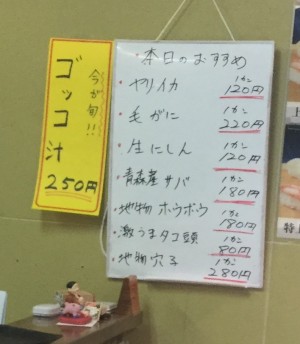 今が旬!!
ゴッコ汁
250円
・本日のおすすめ
・ヤリイカ 1カン 120円
・毛がに 1カン 220円
・生にしん 1カン 120円
・青森産サバ 1カン 180円
・地物ホウボウ 1カン 180円
・激うまタコ頭 1カン 80円
・地物穴子 1カン 280円